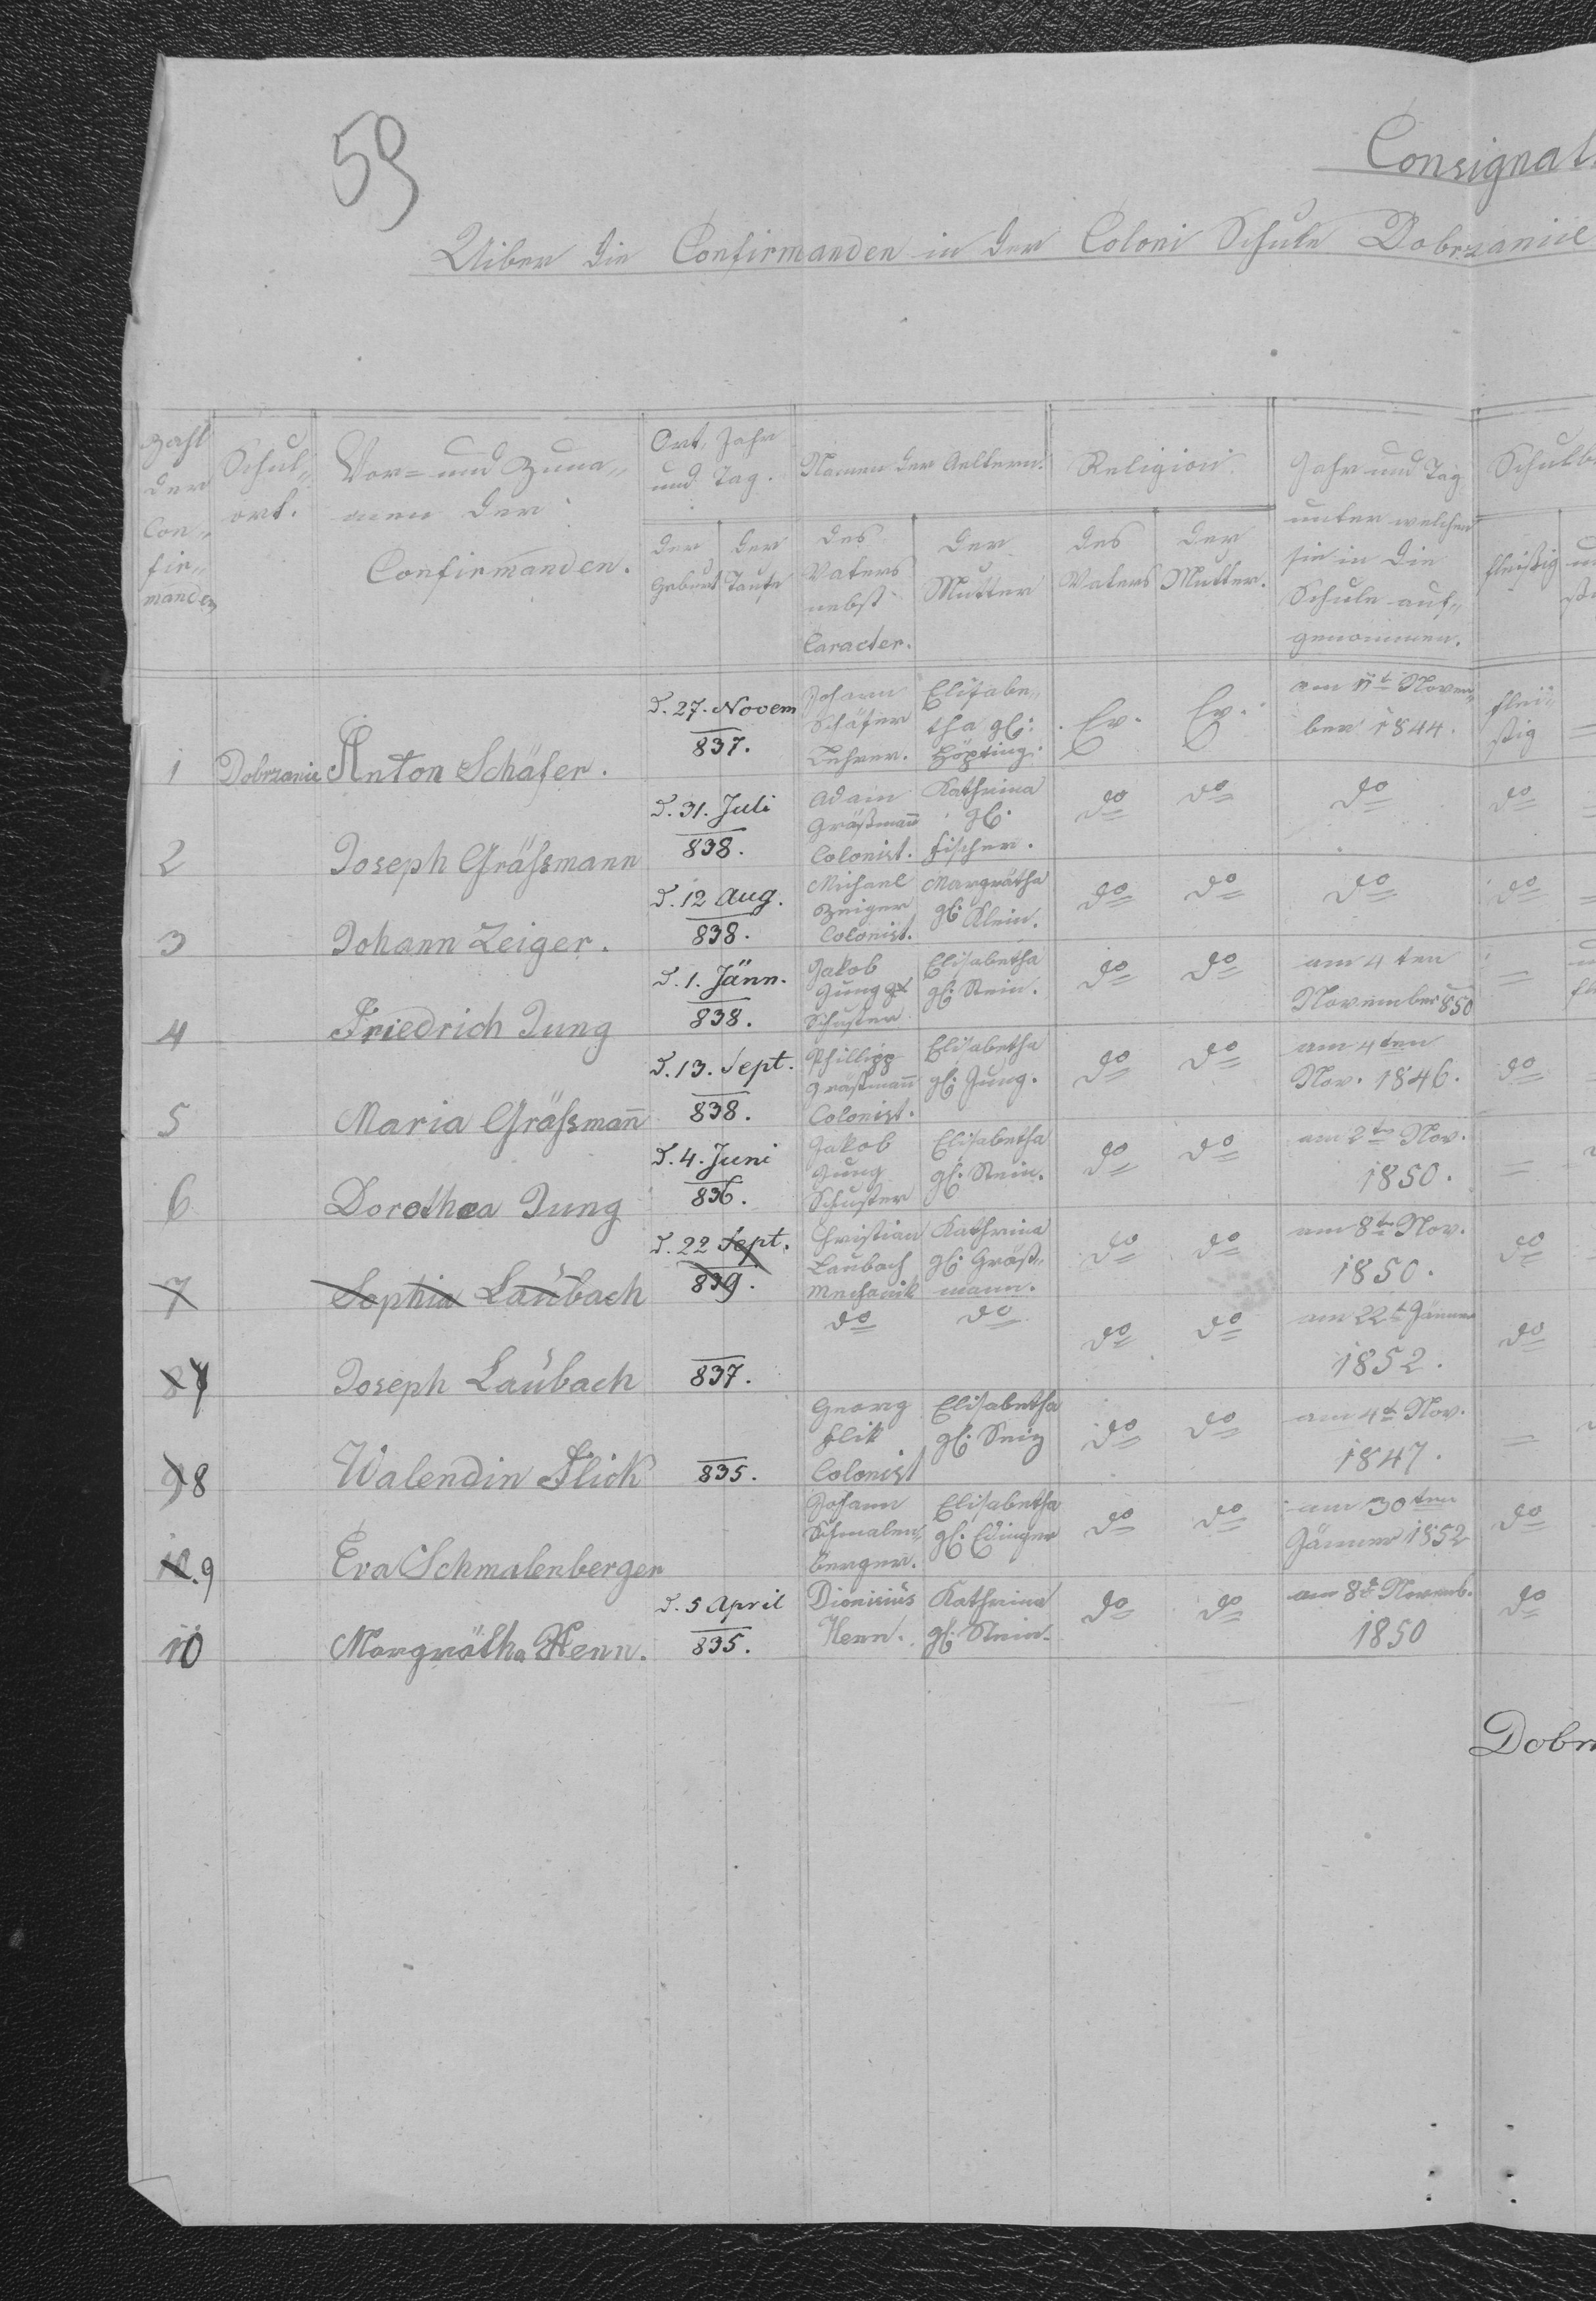 59
Consignat
Uiber die Confirmanden in der Coloni Schule Dobrzanice
Zahl der Con- fir- manden
Schul- ort.
Vor= und Zuna- men der Confirmanden.
Ort, Jahr und Tag.
der Geburt
der Taufe
Namen der Aeltern.
des Vaters nebst Caracter.
der Mutter
Religion
des Vaters
der Mutter.
Jahr und Tag unter welchen sie in die Schule auf- genommen.
Schulb
fleißig
1 Dobrzanic Anton Schäfer. D. 27. Novem 837. Johann Schäfer Lehrer. Elisabe- tha gb: Höpting. Ev. Ev. am 11t Novem- ber 1844. flei- ßig
2 Joseph Grässmann D. 31. Juli 838. Adam Gräßmann Colonist. Kathrina gb. Fischer. do do do do
3 Johann Zeiger. D. 12 Aug. 838. Michael Zeiger Colonist. Margrätha gb: Klein. do do do do
4 Friedrich Jung D. 1. Jänn. 838. Jakob Jung Schuster Elisabetha gb: Stein. do do am 4 ten November 850 =
5 Maria Grässmann D. 13. Sept. 838. Phillipp Gräßmann Colonist. Elisabetha gb: Jung. do do am 4ten Nov. 1846. do
6 Dorothea Jung D. 4. Juni 836. Jakob Jung Schuster Elisabetha gb. Stein. do do am 2tn Nov. 1850. =
7 Sophia Laubach D. 22 Sept. 839. Christian Laubach Mechanik Kathrina gb: Gräß- mann. do do am 8tn Nov. 1850. do
8 7 Joseph Laubach 837. do do do do am 22t Jänner 1852. do
9 8 Walendin Flick 835. Georg Flik Colonist Elisabetha gb: Seiz do do am 4t Nov. 1847. =
10. 9 Eva Schmalenberger Johann Schmalen- berger. Elisabetha gb. Edinger do do am 30ten Jänner 1852 do
10 Margrätha Henn. D. 5 April 835. Dionicius Henn. Kathrina gb: Stein. do do am 8t Novemb. 1850 do
Dobr